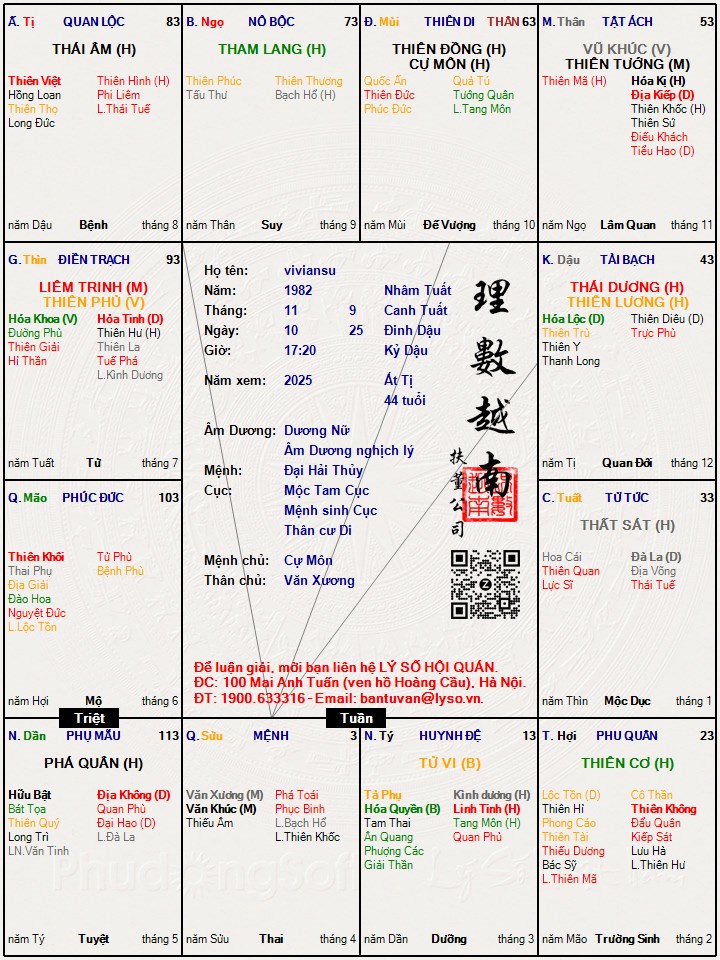 Ấ. Tị QUAN LỘC 83
THÁI ÂM (H)
Thiên Việt Thiên Hình (H)
Hồng Loan Phi Liêm
Thiên Thọ L.Thái Tuế
Long Đức
năm Dậu Bệnh tháng 8
B. Ngọ NÔ BỘC 73
THAM LANG (H)
Thiên Phúc Thiên Thương
Tấu Thư Bạch Hổ (H)
năm Thân Suy tháng 9
Đ. Mùi THIÊN DI THÂN 63
THIÊN ĐỒNG (H)
CỰ MÔN (H)
Quốc Ấn Quả Tú
Thiên Đức Tướng Quân
Phúc Đức L.Tang Môn
năm Mùi Đế Vượng tháng 10
M. Thân TẬT ÁCH 53
VŨ KHÚC (V)
THIÊN TƯỚNG (M)
Thiên Mã (H) Hóa Kị (H)
Địa Kiếp (D)
Thiên Khốc (H)
Thiên Sứ
Điếu Khách
Tiểu Hao (D)
năm Ngọ Lâm Quan tháng 11
G. Thìn ĐIỀN TRẠCH 93
LIÊM TRINH (M)
THIÊN PHỦ (V)
Hóa Khoa (V) Hỏa Tinh (D)
Đường Phù Thiên Hư (H)
Thiên Giải Thiên La
Hỉ Thần Tuế Phá
L.Kình Dương
năm Tuất Tử tháng 7
Họ tên: viviansu
Năm: 1982 Nhâm Tuất
Tháng: 11 9 Canh Tuất
Ngày: 10 25 Đinh Dậu
Giờ: 17:20 Kỷ Dậu
Năm xem: 2025 Ất Tị
44 tuổi
Âm Dương: Dương Nữ
Âm Dương nghịch lý
Mệnh: Đại Hải Thủy
Cục: Mộc Tam Cục
Mệnh sinh Cục
Thân cư Di
Mệnh chủ: Cự Môn
Thân chủ: Văn Xương
理數越南
扶董公司
Để luận giải, mời bạn liên hệ LÝ SỐ HỘI QUÁN.
ĐC: 100 Mai Anh Tuấn (ven hồ Hoàng Cầu), Hà Nội.
ĐT: 1900.633316 - Email: bantuvan@lyso.vn.
K. Dậu TÀI BẠCH 43
THÁI DƯƠNG (H)
THIÊN LƯƠNG (H)
Hóa Lộc (D) Thiên Diêu (D)
Thiên Trù Trực Phù
Thiên Y
Thanh Long
năm Tị Quan Đới tháng 12
Q. Mão PHÚC ĐỨC 103
Thiên Khôi Tử Phù
Thai Phụ Bệnh Phù
Địa Giải
Đào Hoa
Nguyệt Đức
L.Lộc Tồn
năm Hợi Mộ tháng 6
C. Tuất TỬ TỨC 33
THẤT SÁT (H)
Hoa Cái Đà La (D)
Thiên Quan Địa Võng
Lực Sĩ Thái Tuế
năm Thìn Mộc Dục tháng 1
Triệt
Tuần
N. Dần PHỤ MẪU 113
PHÁ QUÂN (H)
Hữu Bật Địa Không (D)
Bát Tọa Quan Phù
Thiên Quý Đại Hao (D)
Long Trì L.Đà La
LN.Văn Tinh
năm Tý Tuyệt tháng 5
Q. Sửu MỆNH 3
Văn Xương (M) Phá Toái
Văn Khúc (M) Phục Binh
Thiếu Âm L.Bạch Hổ
L.Thiên Khốc
năm Sửu Thai tháng 4
N. Tý HUYNH ĐỆ 13
TỬ VI (B)
Tả Phụ Kình dương (H)
Hóa Quyền (B) Linh Tinh (H)
Tam Thai Tang Môn (H)
Ân Quang Quan Phủ
Phượng Các
Giải Thần
năm Dần Dưỡng tháng 3
T. Hợi PHU QUÂN 23
THIÊN CƠ (H)
Lộc Tồn (D) Cô Thần
Thiên Hỉ Thiên Không
Phong Cáo Đẩu Quân
Thiên Tài Kiếp Sát
Thiếu Dương Lưu Hà
Bác Sỹ L.Thiên Hư
L.Thiên Mã
năm Mão Trường Sinh tháng 2